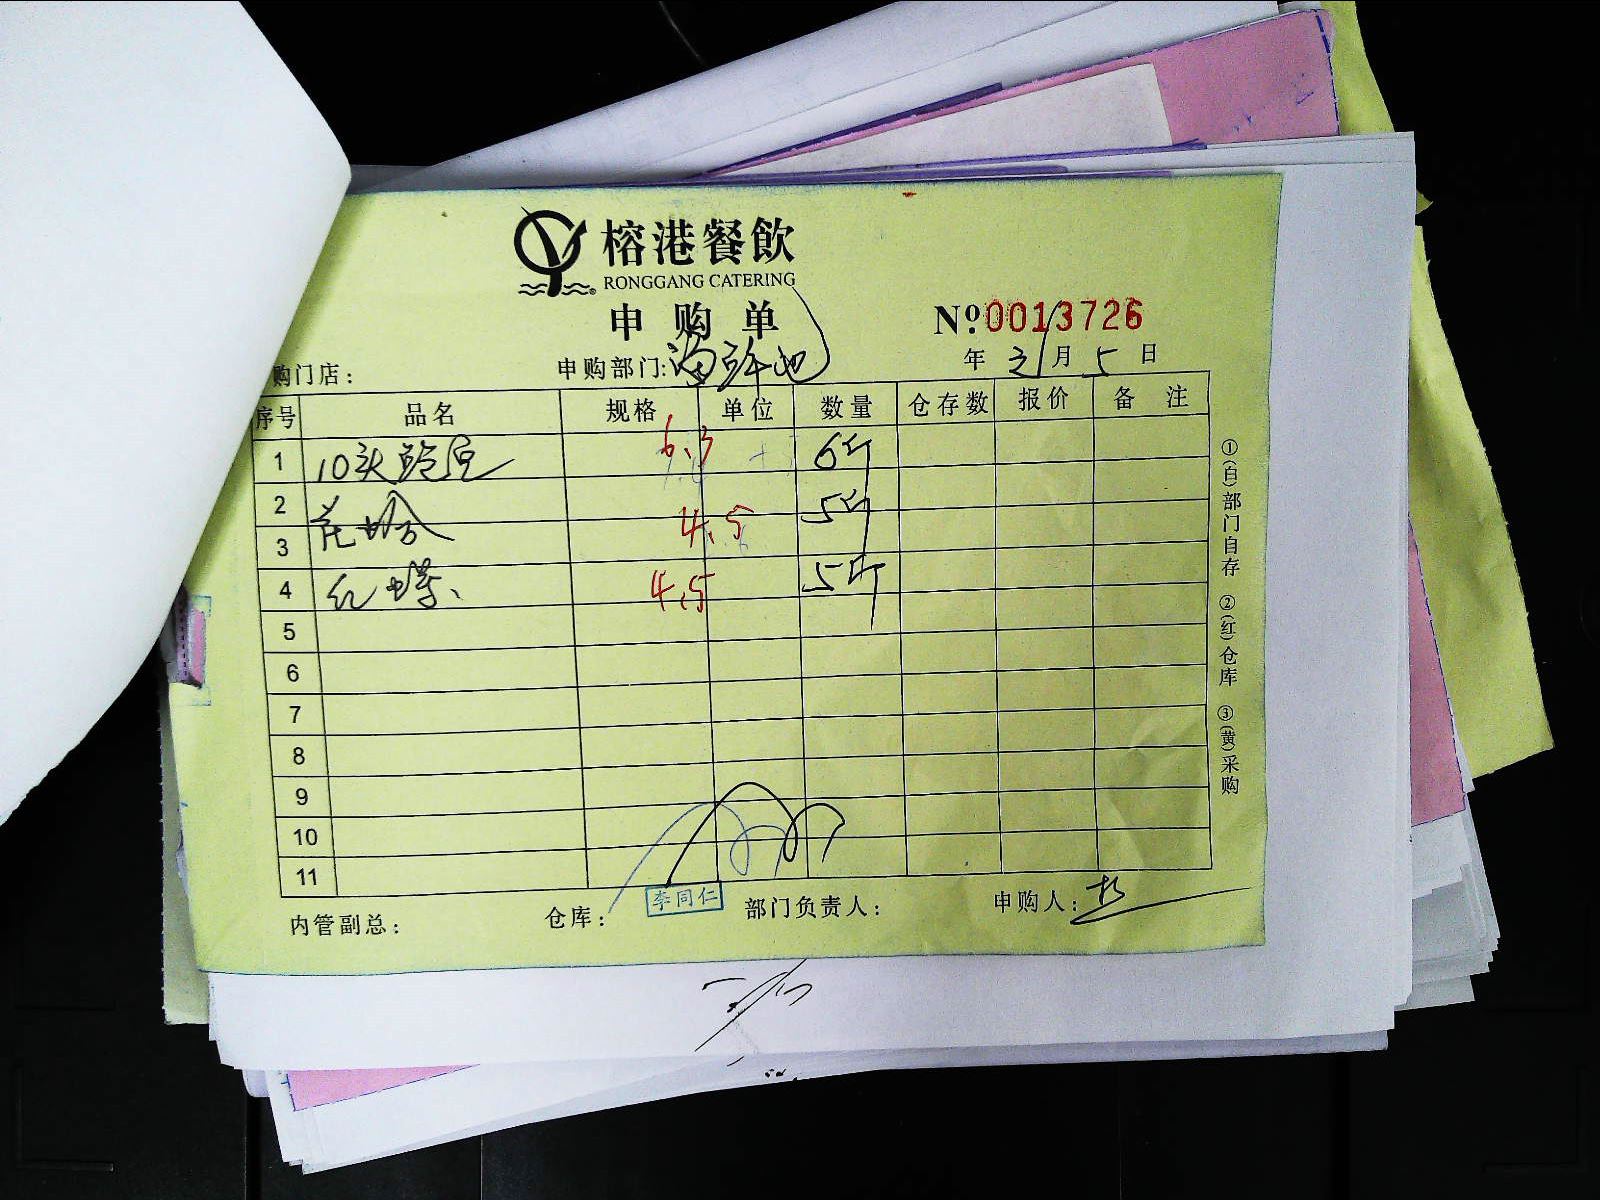 榕港餐飲
RONGGANG CATERING
申购单
№0013726
购门店： 申购部门：海鲜池 年 3月5日
序号 品名 规格 单位 数量 仓存数 报价 备注
1 10头鲍 6.3 6斤
2 花蛤 4.5 5斤
3
4 红 4.5 5斤
5
6
7
8
9
10
11
内管副总： 仓库： 李同仁 部门负责人： 申购人：
①(白)部门自存 ②(红)仓库 ③(黄)采购